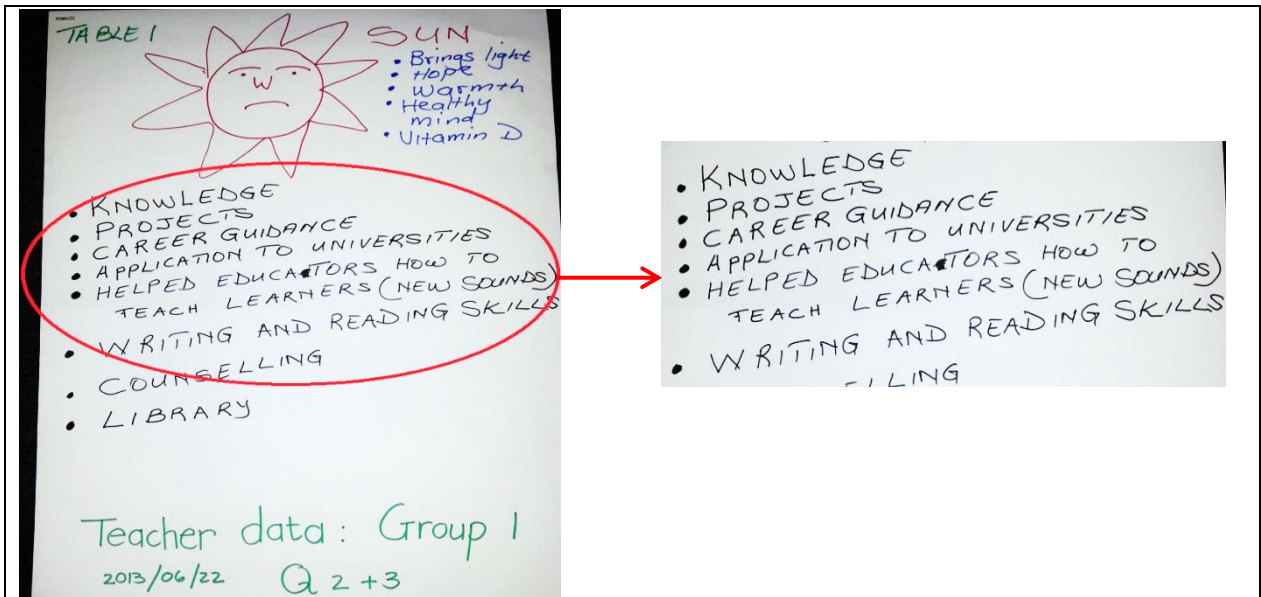 TABLE 1
SUN
• Brings light
• Hope
• Warmth
• Healthy
mind
• Vitamin D
• KNOWLEDGE
• PROJECTS
• CAREER GUIDANCE
• APPLICATION TO UNIVERSITIES
• HELPED EDUCATORS HOW TO
TEACH LEARNERS (NEW SOUNDS)
• WRITING AND READING SKILLS
• COUNSELLING
• LIBRARY
Teacher data: Group 1
2013/06/22 Q 2+3
• KNOWLEDGE
• PROJECTS
• CAREER GUIDANCE
• APPLICATION TO UNIVERSITIES
• HELPED EDUCATORS HOW TO
TEACH LEARNERS (NEW SOUNDS)
• WRITING AND READING SKILLS